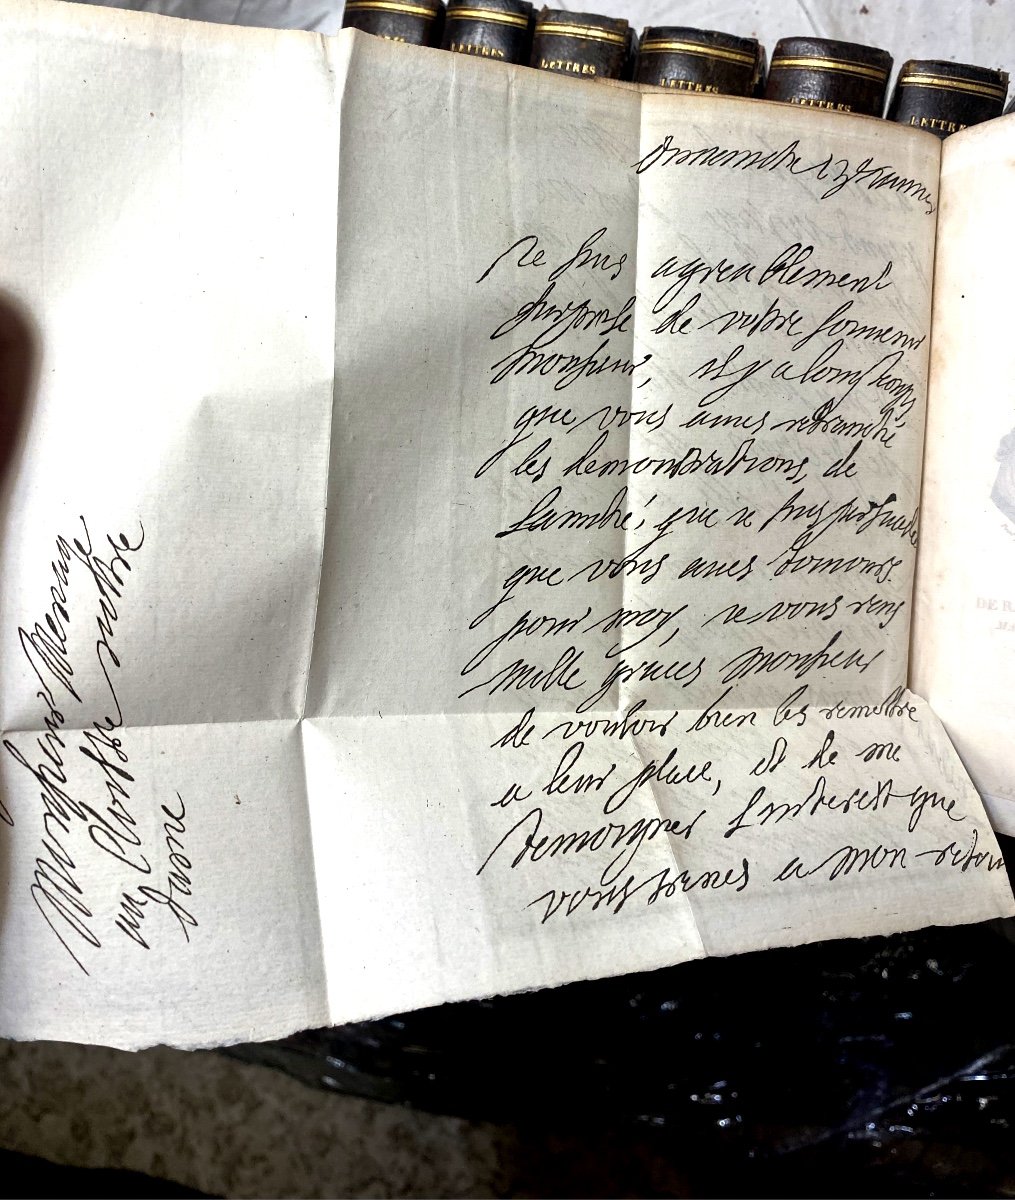 LETTRES
LETTRES
LETTRES
LETTRES
LETTRES
LETTRE
dimanche 12 Jenvier
Je suis agreablement
surprise de vostre souuenir
monsieur, il y a lontemps
que vous aues retranché
les demonstrations, de
lamitié, que je suis persuadée
que vous aues tousiours
pour moy, je vous rens
mille graces monsieur
de vouloir bien les remettre
a leur place, et de me
temoigner linterest que
vous prenes a mon retour
Monsieur Menage
au Cloistre nostre
dame
DE RA